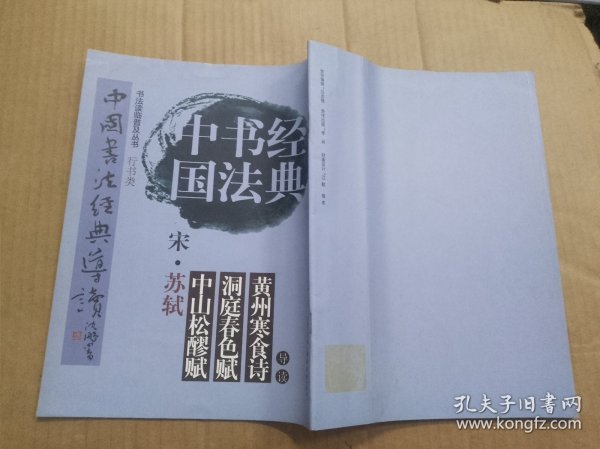 书法读临普及丛书
行书类
中国書法经典導讀
沈鹏
中书经
国法典
宋·苏轼
黄州寒食诗
洞庭春色赋
中山松醪赋
导读
孔夫子旧书网
www.kongfz.com